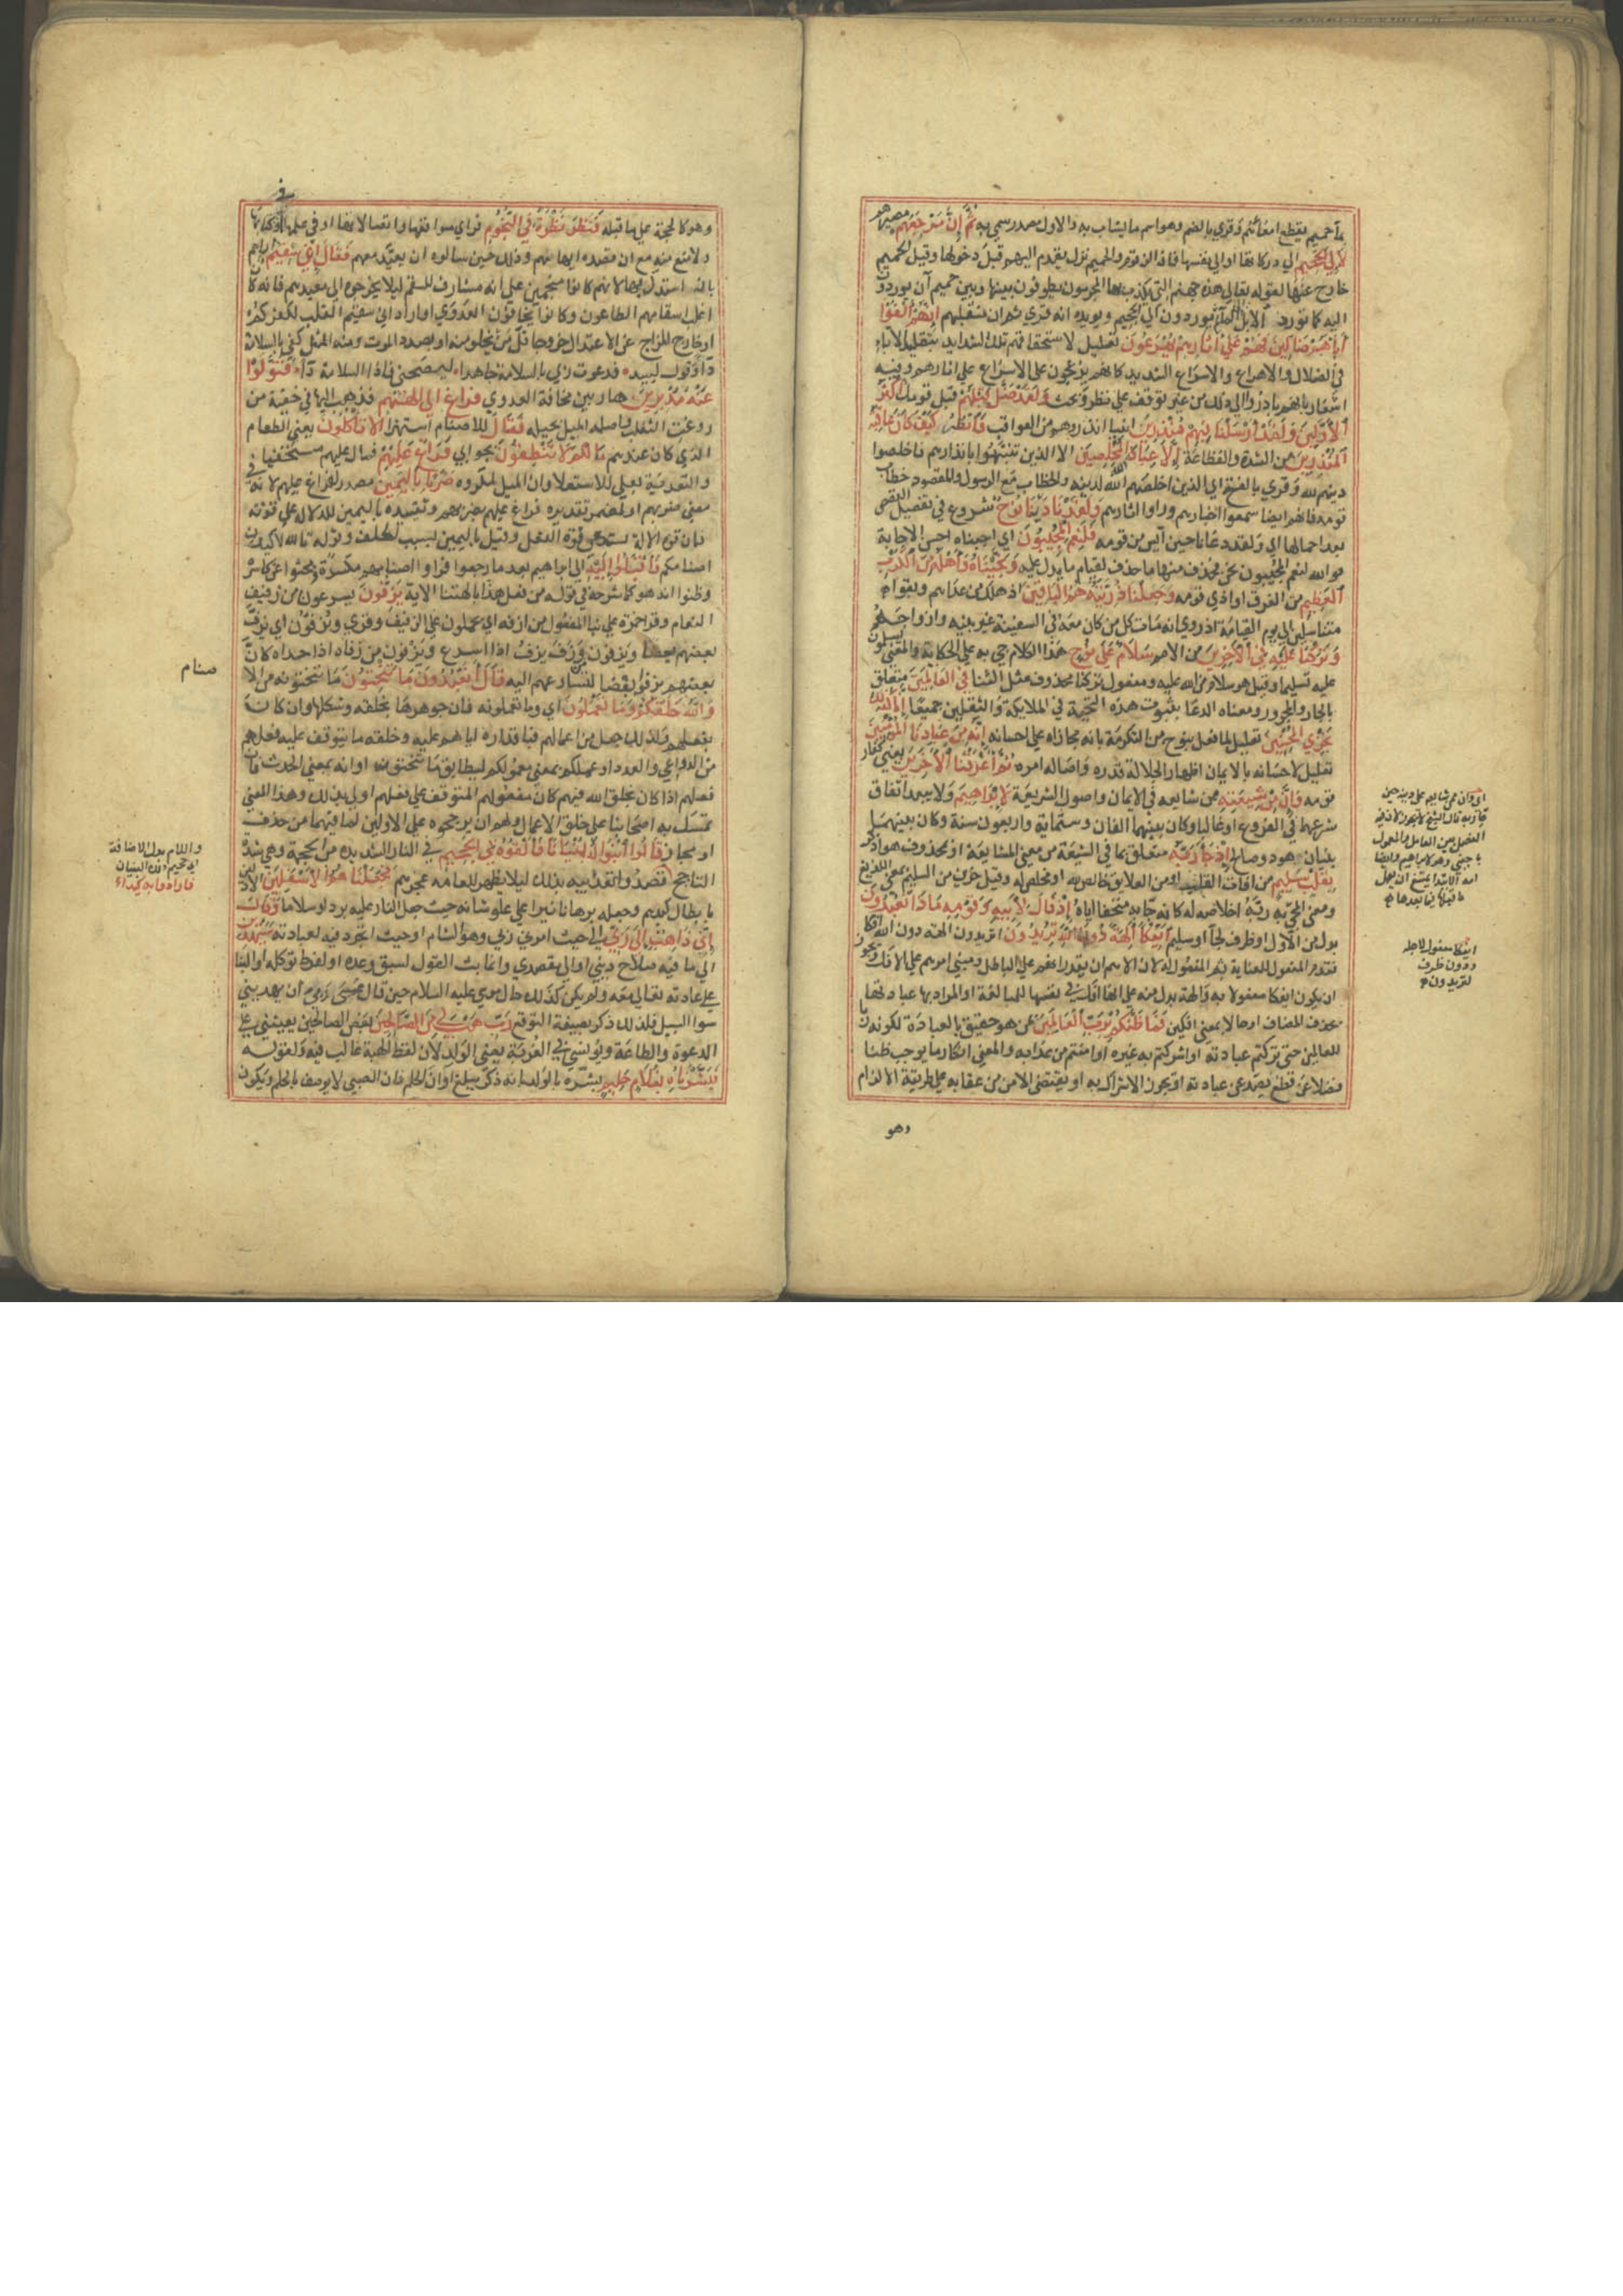 بماء حميم يقطع امعائهم وقرئ بالضم وهو اسم ما يشاب به والاول مصدر سمي به ثم ان مرجعهم مصيرهم
لالى الجحيم الى دركاتها او الى نفسها فان الزقوم والحميم نزل يقدم اليهم قبل دخولها وقيل الحميم
خارج عنها لقوله تعالى هذه جهنم التي يكذب بها المجرمون يطوفون بينها وبين حميم آن يوردون
اليه كما تورد الابل الى الماء ثم يوردون الى الجحيم ويويده انه قرئ ثم ان منقلبهم انهم الفوا
آباءهم ضالين فهم على اثارهم يهرعون تعليل لاستحقاقهم تلك الشدايد بتقليد الآباء
في الضلال والاهراع والاسراع الشديد كانهم يزعجون على الاسراع على اثارهم وفيه
اشعار بانهم بادروا الى ذلك من غير توقف على نظر وبحث ولقد ضل قبلهم قبل قومك اكثر
الاولين ولقد ارسلنا فيهم منذرين انبيا انذروهم من العواقب فانظر كيف كان عاقبة
المنذرين من الشدة والفظاعة الا عباد الله المخلصين الا الذين تنبهوا بانذارهم فاخلصوا
دينهم لله وقرئ بالفتح اى الذين اخلصهم الله لدينه والخطاب مع الرسول والمقصود خطاب
قومه فانهم ايضا سمعوا اخبارهم وراوا اثارهم ولقد نادينا نوح شروع في تفصيل القصص
بعد اجمالها اى ولقد دعانا حين آيس من قومه فلنعم المجيبون اى اجبناه احسن الاجابة
فوالله لنعم المجيبون نحن فحذف منها ما حذف لقيام ما يدل عليه ونجيناه واهله من الكرب
العظيم من الغرق او اذى قومه وجعلنا ذريته هم الباقين اذ هلك من عداهم وبقوا
متناسلين الى يوم القيامة اذ روي انه مات كل من كان معه في السفينة غير بنيه وازواجهم
وتركنا عليه في الآخرين من الامم سلام على نوح هذا الكلام جي به على الحكاية والمعنى يسلمون
عليه تسليما وقيل هو سلام من الله عليه ومفعول تركنا محذوف مثل الثنا في العالمين متعلق
بالجار والمجرور ومعناه الدعا بثبوت هذه التحية في الملايكة والثقلين جميعا انا كذلك
نجزى المحسنين تعليل لما فعل بنوح من التكرمة بانه مجازاة على احسانه انه من عبادنا المؤمنين
تعليل لاحسانه بالايمان اظهارا لجلالة قدره واصالة امره ثم اغرقنا الآخرين يعني كفار
قومه وان من شيعته ممن شايعه في الايمان واصول الشريعة لابراهيم ولا يبعد اتفاق
شرعهما في الفروع او غالبا وكان بينهما الفان وستماية واربعون سنة وكان بينهما
نبيان هود وصالح اذ جاء ربه متعلق بما في الشيعة من معنى المشايعة او بمحذوف هو اذكر
بقلب سليم من آفات القلوب او من العلايق خالص لله او مخلص له وقيل حزين من السليم بمعنى اللديغ
ومعنى المجي به ربه اخلاصه له كانه جاء به متحفا اياه اذ قال لابيه وقومه ماذا تعبدون
بدل من الاول او ظرف لجاء او سليم ائفكا آلهة دون الله تريدون اي تريدون الهة دون الله افكا
فقدم المفعول للعناية ثم المفعول له لان الاهم ان يقرر انهم على الباطل ومبنى امرهم على الافك ويجوز
ان يكون افكا مفعولا به وآلهة بدل منه على انها افك في نفسها للمبالغة او المراد بها عبادتها
بحذف المضاف او حالا بمعنى افكين فما ظنكم برب العالمين بمن هو حقيق بالعبادة لكونه ربا
للعالمين حتى تركتم عبادته او اشركتم به غيره او امنتم من عذابه والمعنى انكار ما يوجب ظنا
فضلا عن قطع يصد عن عبادته او يجوز الاشراك به او يقتضى الامن من عقابه على طريقة الالزام
وهو
اى وان ممن شايعه على دينه حين
جاء ربه قال الشيخ لا يجوز لان فيه
الفصل بين العامل والمعمول
باجنبي وهو لابراهيم وايضا
لام الابتدا يمنع ان يعمل
ما قبلها فيما بعدها
ائفكا مفعول لاجله
ودون ظرف
لتريدون
وهو كالحجة على ما قبله فنظر نظرة في النجوم فراى مواقعها واتصالاتها او في علمها او كتابها
ولا منع منه مع ان قصده ايهامهم وذلك حين سالوه ان يعيد معهم فقال اني سقيم اراهم
بانه استدل بها لانهم كانوا منجمين على انه مشارف للسقم ليلا يخرجوه الى معيدهم فانه كان
اغلب اسقامهم الطاعون وكانوا يخافون العدوى او اراد اني سقيم القلب لكفركم
او خارج المزاج عن الاعتدال خروجا قل من يخلو منه او بصدد الموت ومنه المثل كفى بالسلامة
داء وقول لبيد فدعوت ربي بالسلامة جاهدا ليصحني فاذا السلامة داء فتولوا
عنه مدبرين هاربين مخافة العدوى فراغ الى الهتهم فذهب اليها في خفية من
روغت الثعلب واصله الميل بحيلة فقال للاصنام استهزاء الا تاكلون يعنى الطعام
الذى كان عندهم ما لكم لا تنطقون بجوابي فراغ عليهم فمال عليهم مستخفيا
والتعدية بعلى للاستعلا وان الميل لمكروه ضربا باليمين مصدر لراغ عليهم لانه في
معنى ضربهم او لمضمر تقديره فراغ عليهم يضربهم وتقييده باليمين للدلالة على قوته
فان قوة الالة تستدعى قوة الفعل وقيل باليمين بسبب الحلف وقوله تالله لاكيدن
اصنامكم فاقبلوا اليه الى ابراهيم بعد ما رجعوا فراوا اصنامهم مكسرة وبحثوا عن كاسرها
وظنوا انه هو كما شرحه في قوله من فعل هذا بالهتنا الاية يزفون يسرعون من زفيف
النعام وقرا حمزة على بنا المفعول من ازفه اى يحملون على الزفيف وقرئ ويزفون اى يزف
بعضهم بعضا ويزفون من وزف يزف اذا اسرع ويزفون من زفاه اذا حداه كان
بعضهم يزفو بعضا لتسارعهم اليه قال اتعبدون ما تنحتون ما تنحتونه من الا
صنام
والله خلقكم وما تعملون اى وما تعملونه فان جوهرها بخلقه وشكلها وان كان
بفعلهم ولذلك جعل من اعمالهم فباقداره اياهم عليه وخلقه ما يتوقف عليه فعلهم
من الدواعي والعدد او عملكم بمعنى معمولكم ليطابق ما تنحتون او انه بمعنى الحدث فان
فعلهم اذا كان بخلق الله فيهم كان مفعولهم المتوقف على فعلهم اولى بذلك وهذا المعنى
تمسك به اصحابنا على خلق الاعمال ولهم ان يرجحوه على الاولين لما فيهما من حذف
او مجاز قالوا ابنوا له بنيانا فالقوه في الجحيم في النار الشديدة من الجحمة وهي شدة
التاجج
واللام بدل الاضافة
اى جحيم ذلك البنيان
فارادوا به كيداء
قصدوا تعذيبه بذلك ليلا يظهر للعامة عجزهم فجعلناهم الاسفلين الاذلين
بابطال كيدهم وجعله برهانا نيرا على علو شانه حيث جعل النار عليه بردا وسلاما وقال
اني ذاهب الى ربي الى حيث امرني ربي وهو الشام او حيث اتجرد فيه لعبادته سيهدين
الى ما فيه صلاح ديني او الى مقصدي وانما بت القول لسبق وعده او لفرط توكله او البنا
على عادته تعالى معه ولم يكن كذلك حال موسى عليه السلام حين قال عسى ربي ان يهديني
سوا السبيل فلذلك ذكر بصيغة التوقع رب هب لي من الصالحين بعض الصالحين يعينني على
الدعوة والطاعة ويؤنسني في الغربة يعنى الولد لان لفظ الهبة غالب فيه ولقوله
فبشرناه بغلام حليم بشره بالولد بانه ذكر يبلغ اوان الحلم فان الصبي لا يوصف بالحلم ويكون